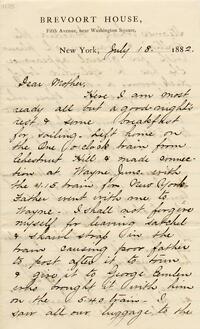 BREVOORT HOUSE,
Fifth Avenue, near Washington Square,
New York, July 18 1882.
Dear Mother,
Here I am most
ready all but a good night's
rest & some breakfast
for sailing. Left home on
the One o'clock train from
Chestnut Hill & made connec
tion at Wayne Junc. with
the 4.15 train for New York.
Father went with me to
Wayne. I shall not forgive
myself for leaving satchel
& shawl strap in the
train causing poor father
to post after it to town
& give it to George
who brought it with him
on the 5.40 train. I
saw all our luggage to the